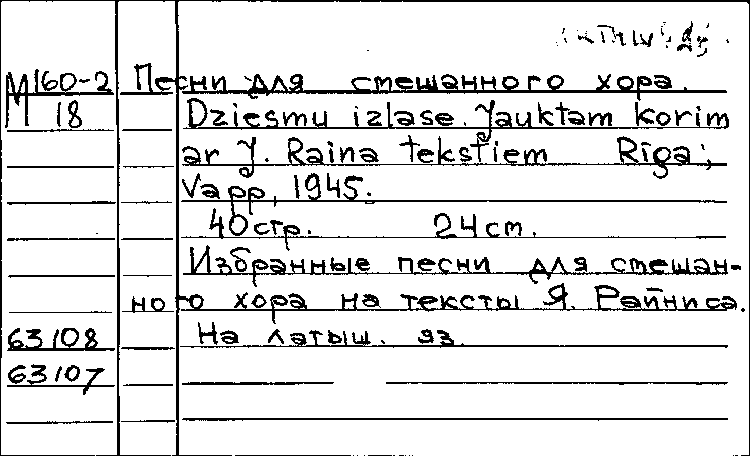 М160-2 Песни для смешанного хора.
М 18 Dziesmu izlase. Jauktam korim
ar J. Raina tekstiem Rīga;
Vapp, 1945.
40стр. 24cm.
Избранные песни для смешан-
ного хора на тексты Я. Райниса.
63108 На латыш. яз.
63107